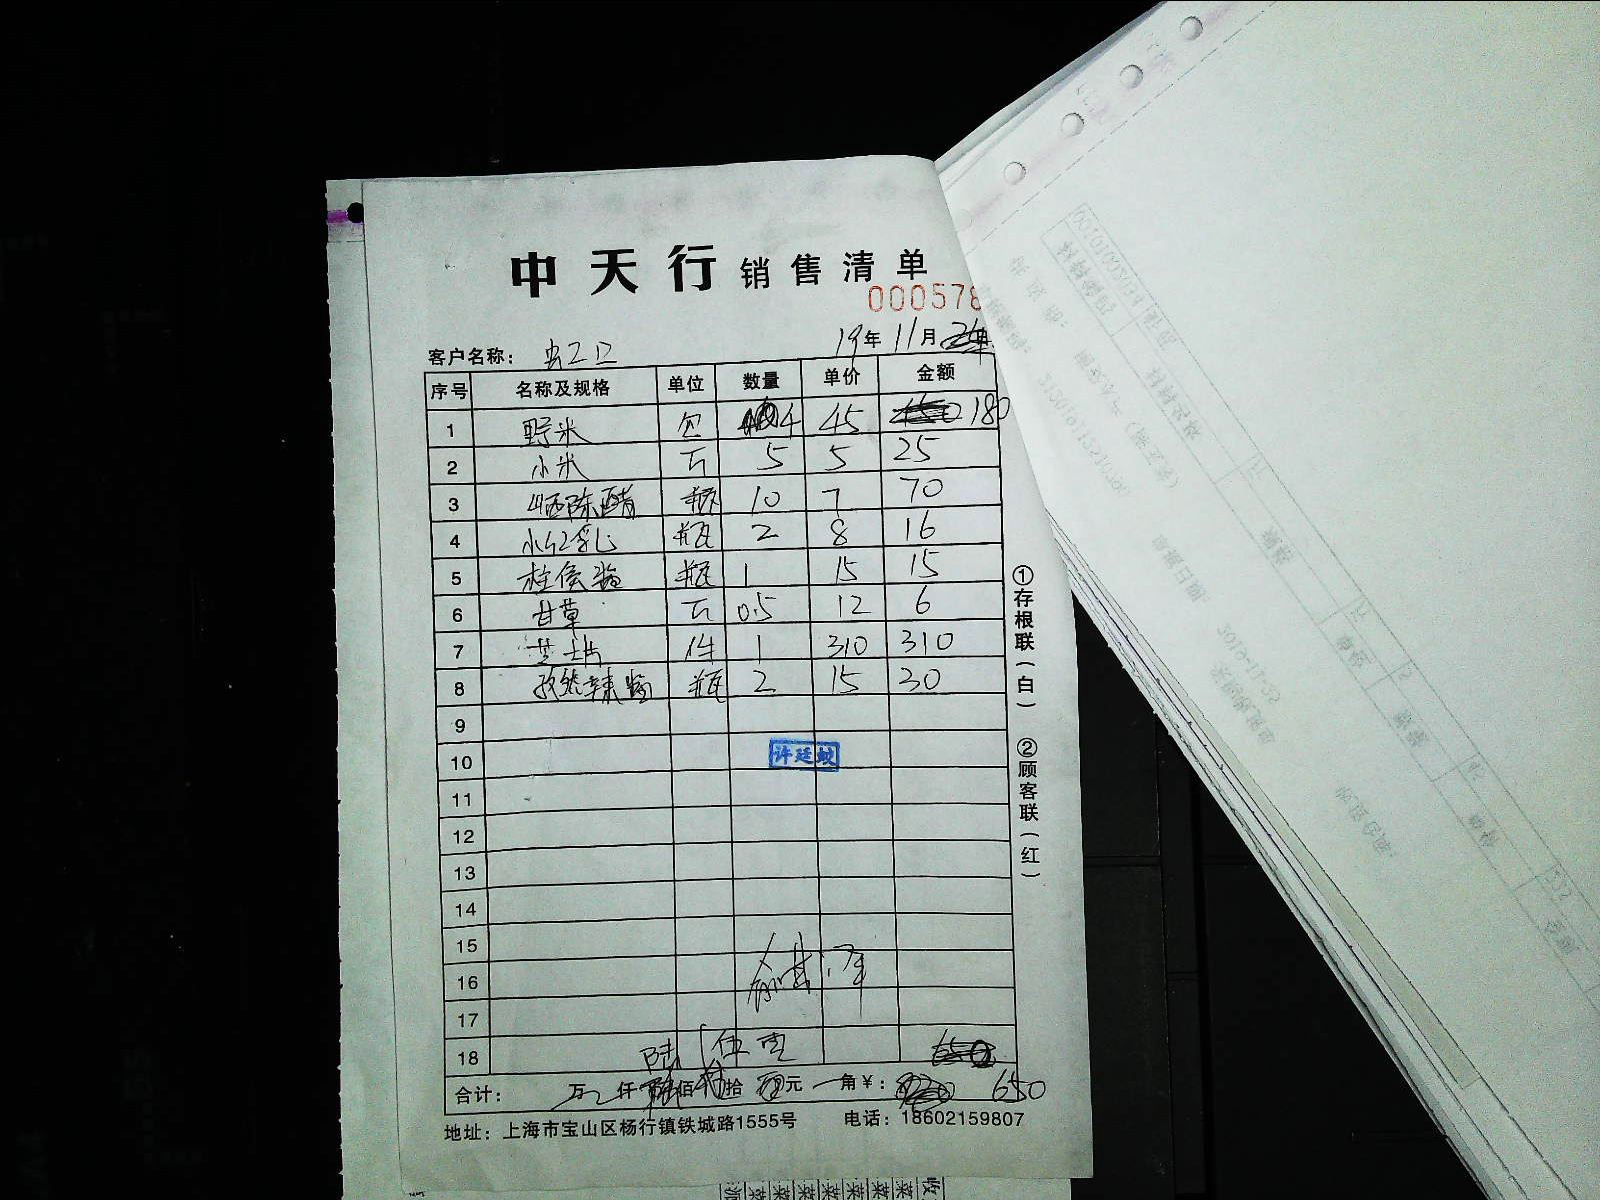 中天行 销售清单
000578
19年 11月
客户名称: 虹口
序号 名称及规格 单位 数量 单价 金额
1 野米 包 4 45 180
2 小米 斤 5 5 25
3 山西陈醋 瓶 10 7 70
4 小红乳 瓶 2 8 16
5 桂侯酱 瓶 1 15 15
6 甘草 斤 0.5 12 6
7 芝士片 件 1 310 310
8 孜然辣酱 瓶 2 15 30
9
10 许廷蛟
11
12
13
14
15
16
17
18 陆 伍 零
合计: 万 仟 佰 拾 元 角 ¥: 650
地址: 上海市宝山区杨行镇铁城路1555号 电话: 18602159807
①存根联(白) ②顾客联(红)